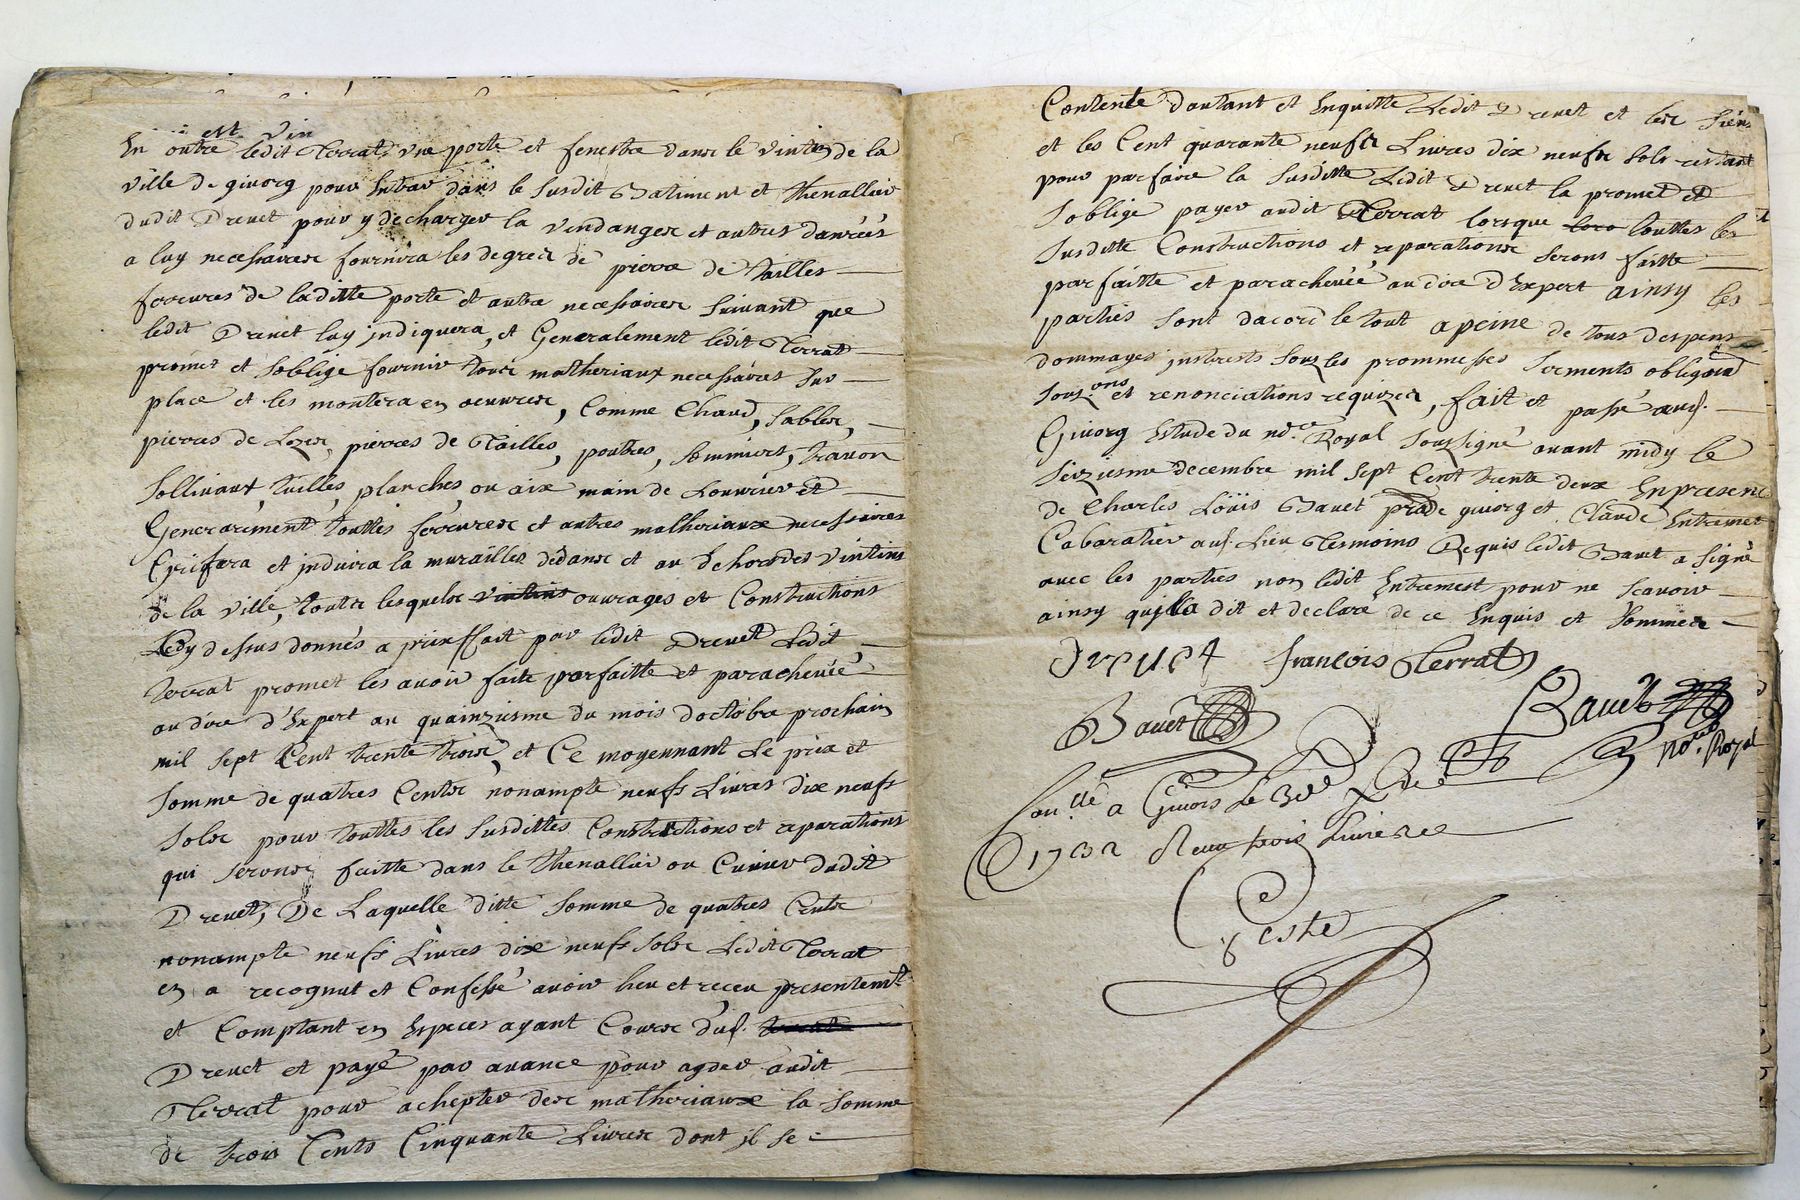 est vin
En outre ledit Terrat, une porte et fenestra dans le vintin de la
ville de givorg pour Entrar dans le susdit Batiment et thenallier
dudit Drevet pour y decharger la vendanges et autres danrées
a luy necessaires fournira les degrez de pierre de tailles
ferrures de laditte porte et autre necessaires suivant que
ledit Drevet luy indiquera, et Generalement ledit Terrat
promet et soblige fournir tous matheriaux necessaires sur
place et les montera en oeuvres, Comme Chaud, Sables,
pierres de Lozes, pierres de Tailles, poutres, Sommiers, travon
Sollivaux, tuilles, planches ou aix main de Louvrier et
Generarement touttes ferrures et autres matheriaux necessaires
Crifera et induira la murailles dedans et au dehors des vintins
de la ville, touts lesquels vintins ouvrages et Constructions
Cy dessus donnés a prixffait par ledit Drevet Ledit
terrat promet les avoir faite parfaitte et parachevée
audire d'Expert au quainziesme du mois doctobre prochain
mil sept Cent trente trois, et Ce moyennant Le prix et
Somme de quatres Cents nonampte neufs Livres dix neufs
Sols pour touttes les susdittes Constructions et reparations
qui seronts faitte dans le thenallier ou Cuvier dudit
Drevet, De Laquelle ditte Somme de quatres Cents
nonampte neufs Livres dix neufs sols Ledit Terrat
en a recognut et Confessé avoir heu et receu presentemt
et Comptant en Especes ayant Cours duf.
Drevet et payé par avance pour ayder audit
Terrat pour achepter des matheriaux la somme
de trois Cents Cinquante Livres dont il se
Contente dautant et Enquitte Ledit Drevet et les siens
et les Cent quarante neufs Livres dix neufs sols restant
pour parfaire la susditte Ledit Drevet la promet et
soblige payer audit Terrat lorsque touttes les
susditte Constructions et reparations serons faitte
parfaitte et parachevée audire d'Expert ainsy les
parties sont dacord le tout a peine de tous despens
dommages interests sous les prommesses serments obligaôn
souz.ons et renonciations requizes, fait et passé auf.
Givorg Estude du nore Royal soussigné avant midy le
seiziesme decembre mil sept Cent trente deux En presenc
de Charles Loüis Bavet prade givorg et Claude Entremet
Cabaratier auf. Lieu Tesmoins Requis ledit Bavet a signé
avec les parties non ledit Entremest pour ne scavoir
ainsy quila dit et declare de ce Enquis et sommée
Drevet françois Terrat
Bavet
Bavet
nore Royal
Conllé a Givors Le Xbre
1732 Receu trois Livres
Geste